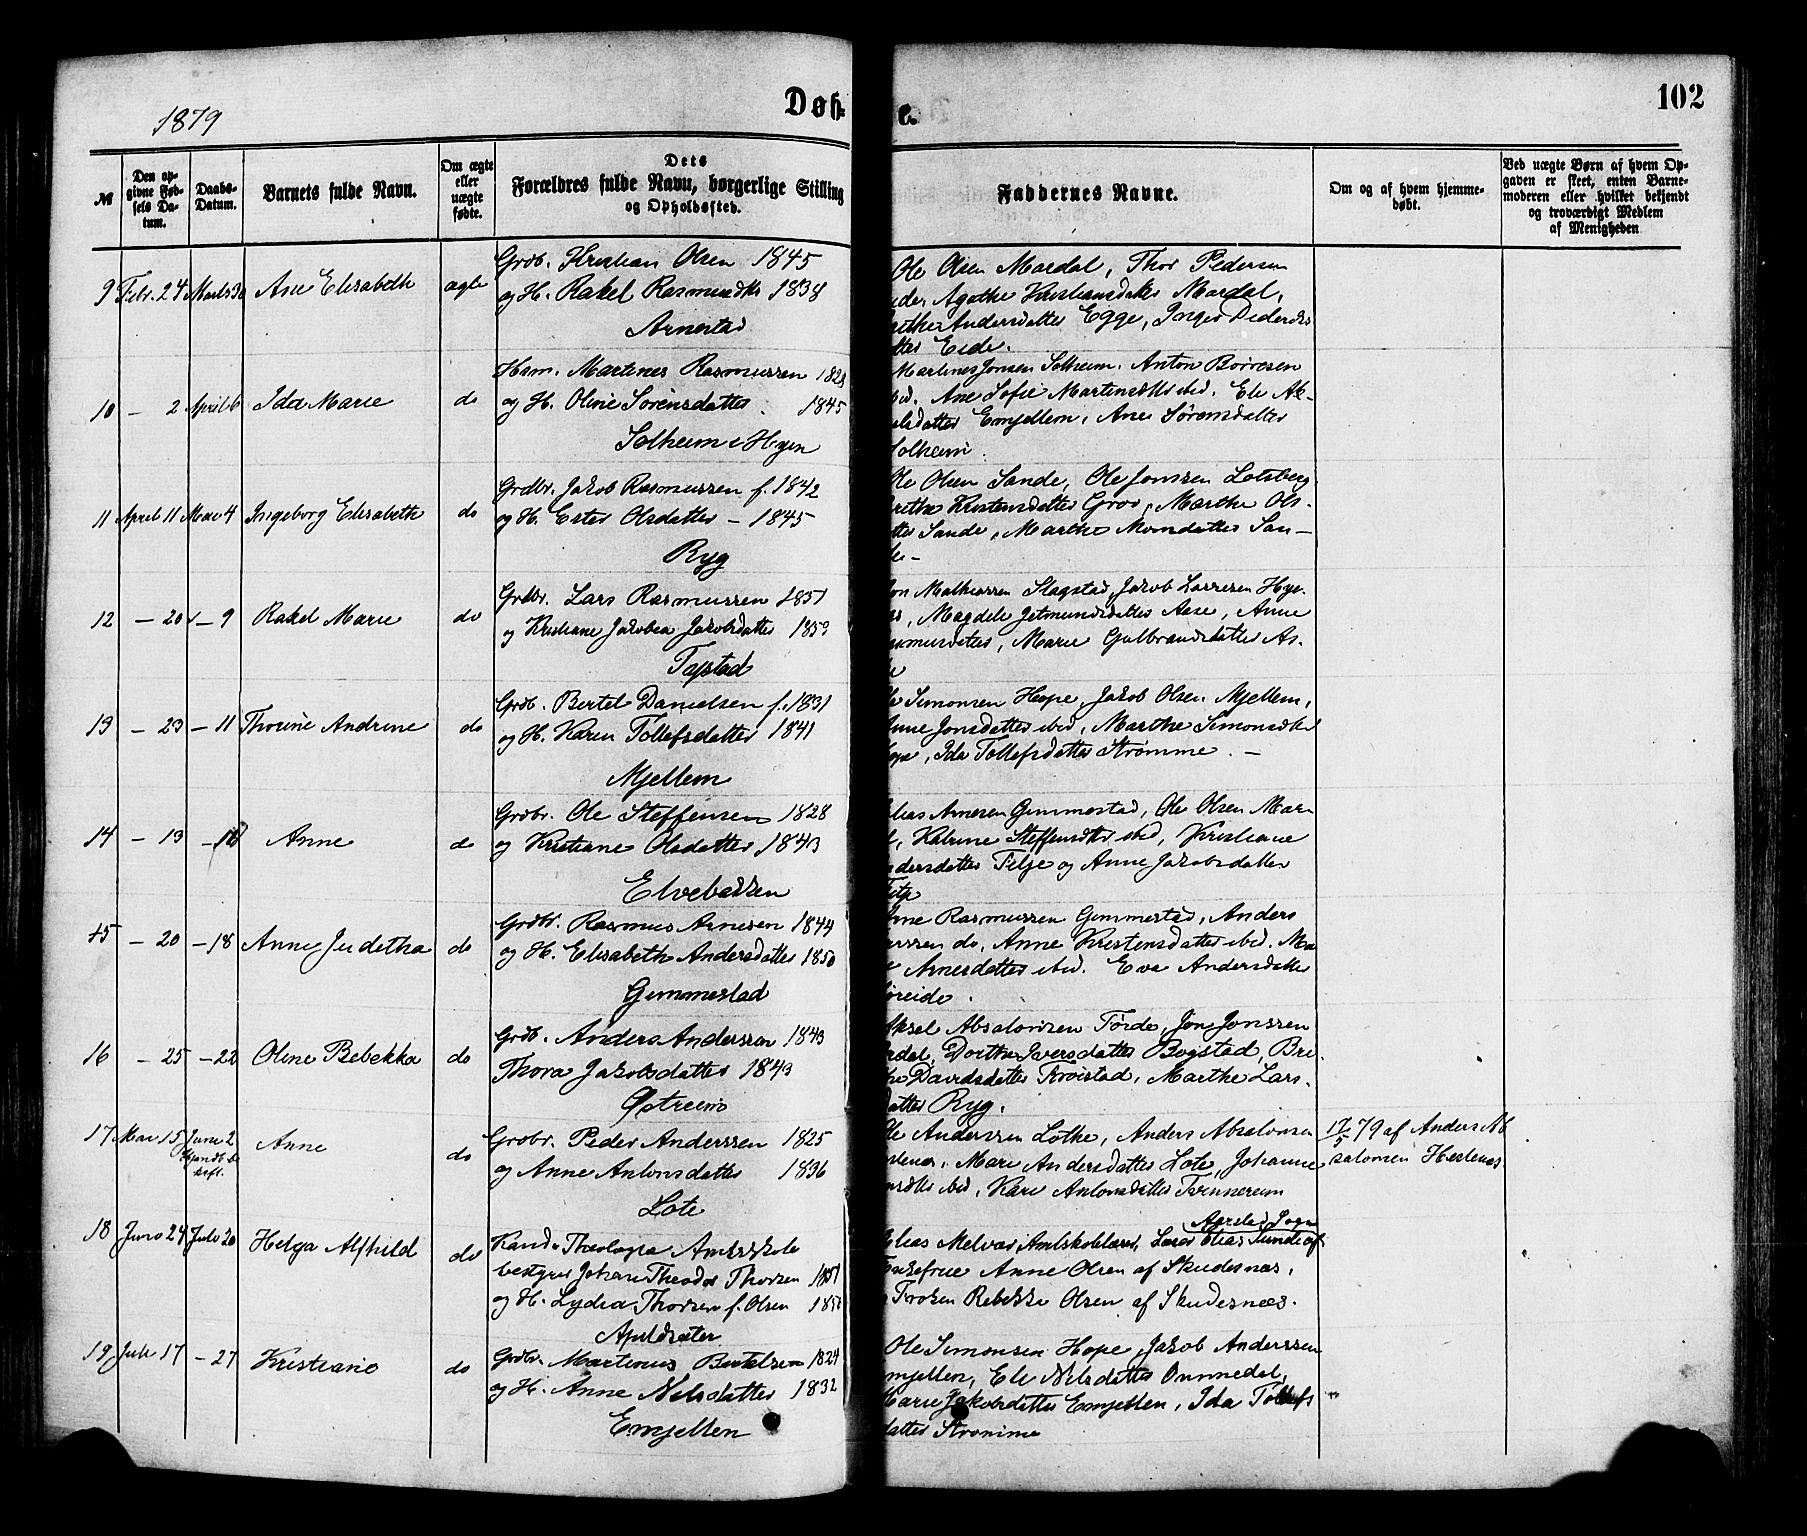 1879
Døbte.
102
№
Den opgivne Fødsels Datum.
Daabs-Datum.
Barnets fulde Navn.
Om ægte eller uægte fødte.
Dets Forældres fulde Navn, borgerlige Stilling og Opholdssted.
Faddernes Navne.
Om og af hvem hjemmedøbt.
Ved uægte Børn af hvem Opgaven er skeet, enten Barnemoderen eller hvilket bekjendt og troværdigt Medlem af Menigheden
9 Febr. 24 Marts 30 Ane Elisabeth ægte
Grdb. Kristian Olsen 1845
og H. Rakel Rasmusdtr 1838
Arnestad
Ole Olsen Mardal, Thor Pedersen
Agathe Kristiansdatter Mardal,
Andersdatter Egge, Inger Dideriks
Eide.
10 — 2 April 6 Ida Marie do
Hsm. Martines Rasmussen 1828
og H. Oline Sørensdatter 1845
Solheim i Hyen
Martines Jonsen Solheim. Anton Børresen
Ane Sofie Martinsdtr ibid. Eli Ak-
Emjellem, Ane Sørensdatter
Solheim.
11 April 11 Mai 4 Ingeborg Elisabeth do
Grdbr. Jakob Rasmussen f. 1842
og H. Ester Olsdatter — 1845
Ryg
Ole Olsen Sande, Ole Jonssen Lotsberg
Kristensdatter Gros, Marthe Ols-
Sande, Marthe Monsdatter San-
de —
12 — 20 — 9 Rakel Marie do
Grdbr. Lars Rasmussen 1851
og Kristiane Jakobea Jakobsdatter 1859
Tystad
Mathiassen Slagstad, Jakob Larsesen Hye-
Magdele Jetmundsdatter Aase, Anne
Rasmusdatter, Marie Gulbrandsdatter As-
13 — 23 — 11 Thorine Andrine do
Grdb. Bertel Danielsen f. 1831
og H. Karen Tollefsdatter 1841
Mjellem
Ole Simonsen Hope, Jakob Olsen Mjellem,
Anne Jonsdatter ibid, Marthe Simonsdtr
Hope, Ida Tollefsdatter Strømme. —
14 — 13 — 18 Anne do
Grdbr. Ole Steffensen 1828
og Kristiane Olsdatter 1843
Elvebakken
Elias Arnesen Gimmestad, Ole Olsen Mar-
Katrine Steffensdtr ibid, Kristiane
Andersdatter Fitje og Anne Jakobsdatter
Fitje
15 — 20 — 18 Anne Judetha do
Grdbr. Rasmus Arnesen 1844
og H. Elisabeth Andersdatter 1850
Gimmestad
Arne Rasmussen Gimmestad, Anders
do, Anne Kristensdatter ibid. Ma-
Arnesdatter ibid. Eva Andersdatter
16 — 25 — 22 Oline Rebekka do
Grdb. Anders Anderssen 1843
Thora Jakobsdatter 1843
Østreim
Aksel Absalonsen Førde, Jon Jonssen
Dorthe Iversdatter Bogstad, Bri-
the Davidsdatter Frøistad, Marthe Lars-
datter Ryg.
17 Mai 15 Juni 2 Anne do
Grdbr. Peder Anderssen 1825
og Anne Antonsdatter 1836
Lote
Ole Anderssen Lothe, Anders Absalonsen
Hestenes, Mari Andersdatter Lote, Johanne
ibid, Kari Antonsdatter Tvinnereim
17/5 79 af Anders Ab
salonsen Hestenes
18 Juni 24 Juli 20 Helga Alfhild do
Kand. Theologia Amtsskole
bestyrer Johan Theodor Thorsen 1851
og H. Lydia Thorsen f. Olsen
Apildsæter
Elias Melvær Amtskolelærer, Lærer Elias Sunde af
Sogn
Anne Olsen af Skudesnæs,
Frøken Rebekka Olsen af Skudesnæs.
19 Juli 17 — 27 Kristiane do
Grdbr. Martinus Bertelsen 1824
og H. Anne Nilsdatter 1832
Emjellen
Ole Simonsen Hope, Jakob Anderssen
Emjellen, Eli Nilsdatter Ommedal,
Marie Jakobsdatter Emjellen, Ida Tollefs
datter Strømme